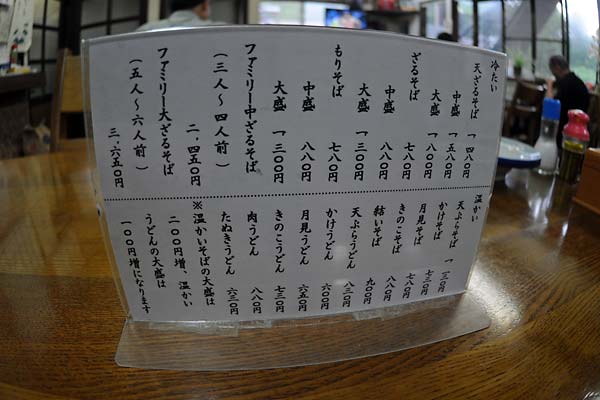 冷たい
天ざるそば 一、四八〇円
中盛 一、五八〇円
大盛 一、八〇〇円
ざるそば 七八〇円
中盛 八八〇円
大盛 一、三〇〇円
もりそば 七八〇円
中盛 八八〇円
大盛 一、三〇〇円
ファミリー中ざるそば
(三人～四人前) 二、四五〇円
ファミリー大ざるそば
(五人～六人前) 三、六五〇円
温かい
天ぷらそば
かけそば 七三〇円
月見そば 七八〇円
きのこそば 八八〇円
結いそば 九〇〇円
天ぷらうどん 八三〇円
かけうどん 六〇〇円
月見うどん 六五〇円
きのこうどん 七三〇円
肉うどん 八八〇円
たぬきうどん 六三〇円
※温かいそばの大盛は
二〇〇円増、温かい
うどんの大盛は
一〇〇円増になります